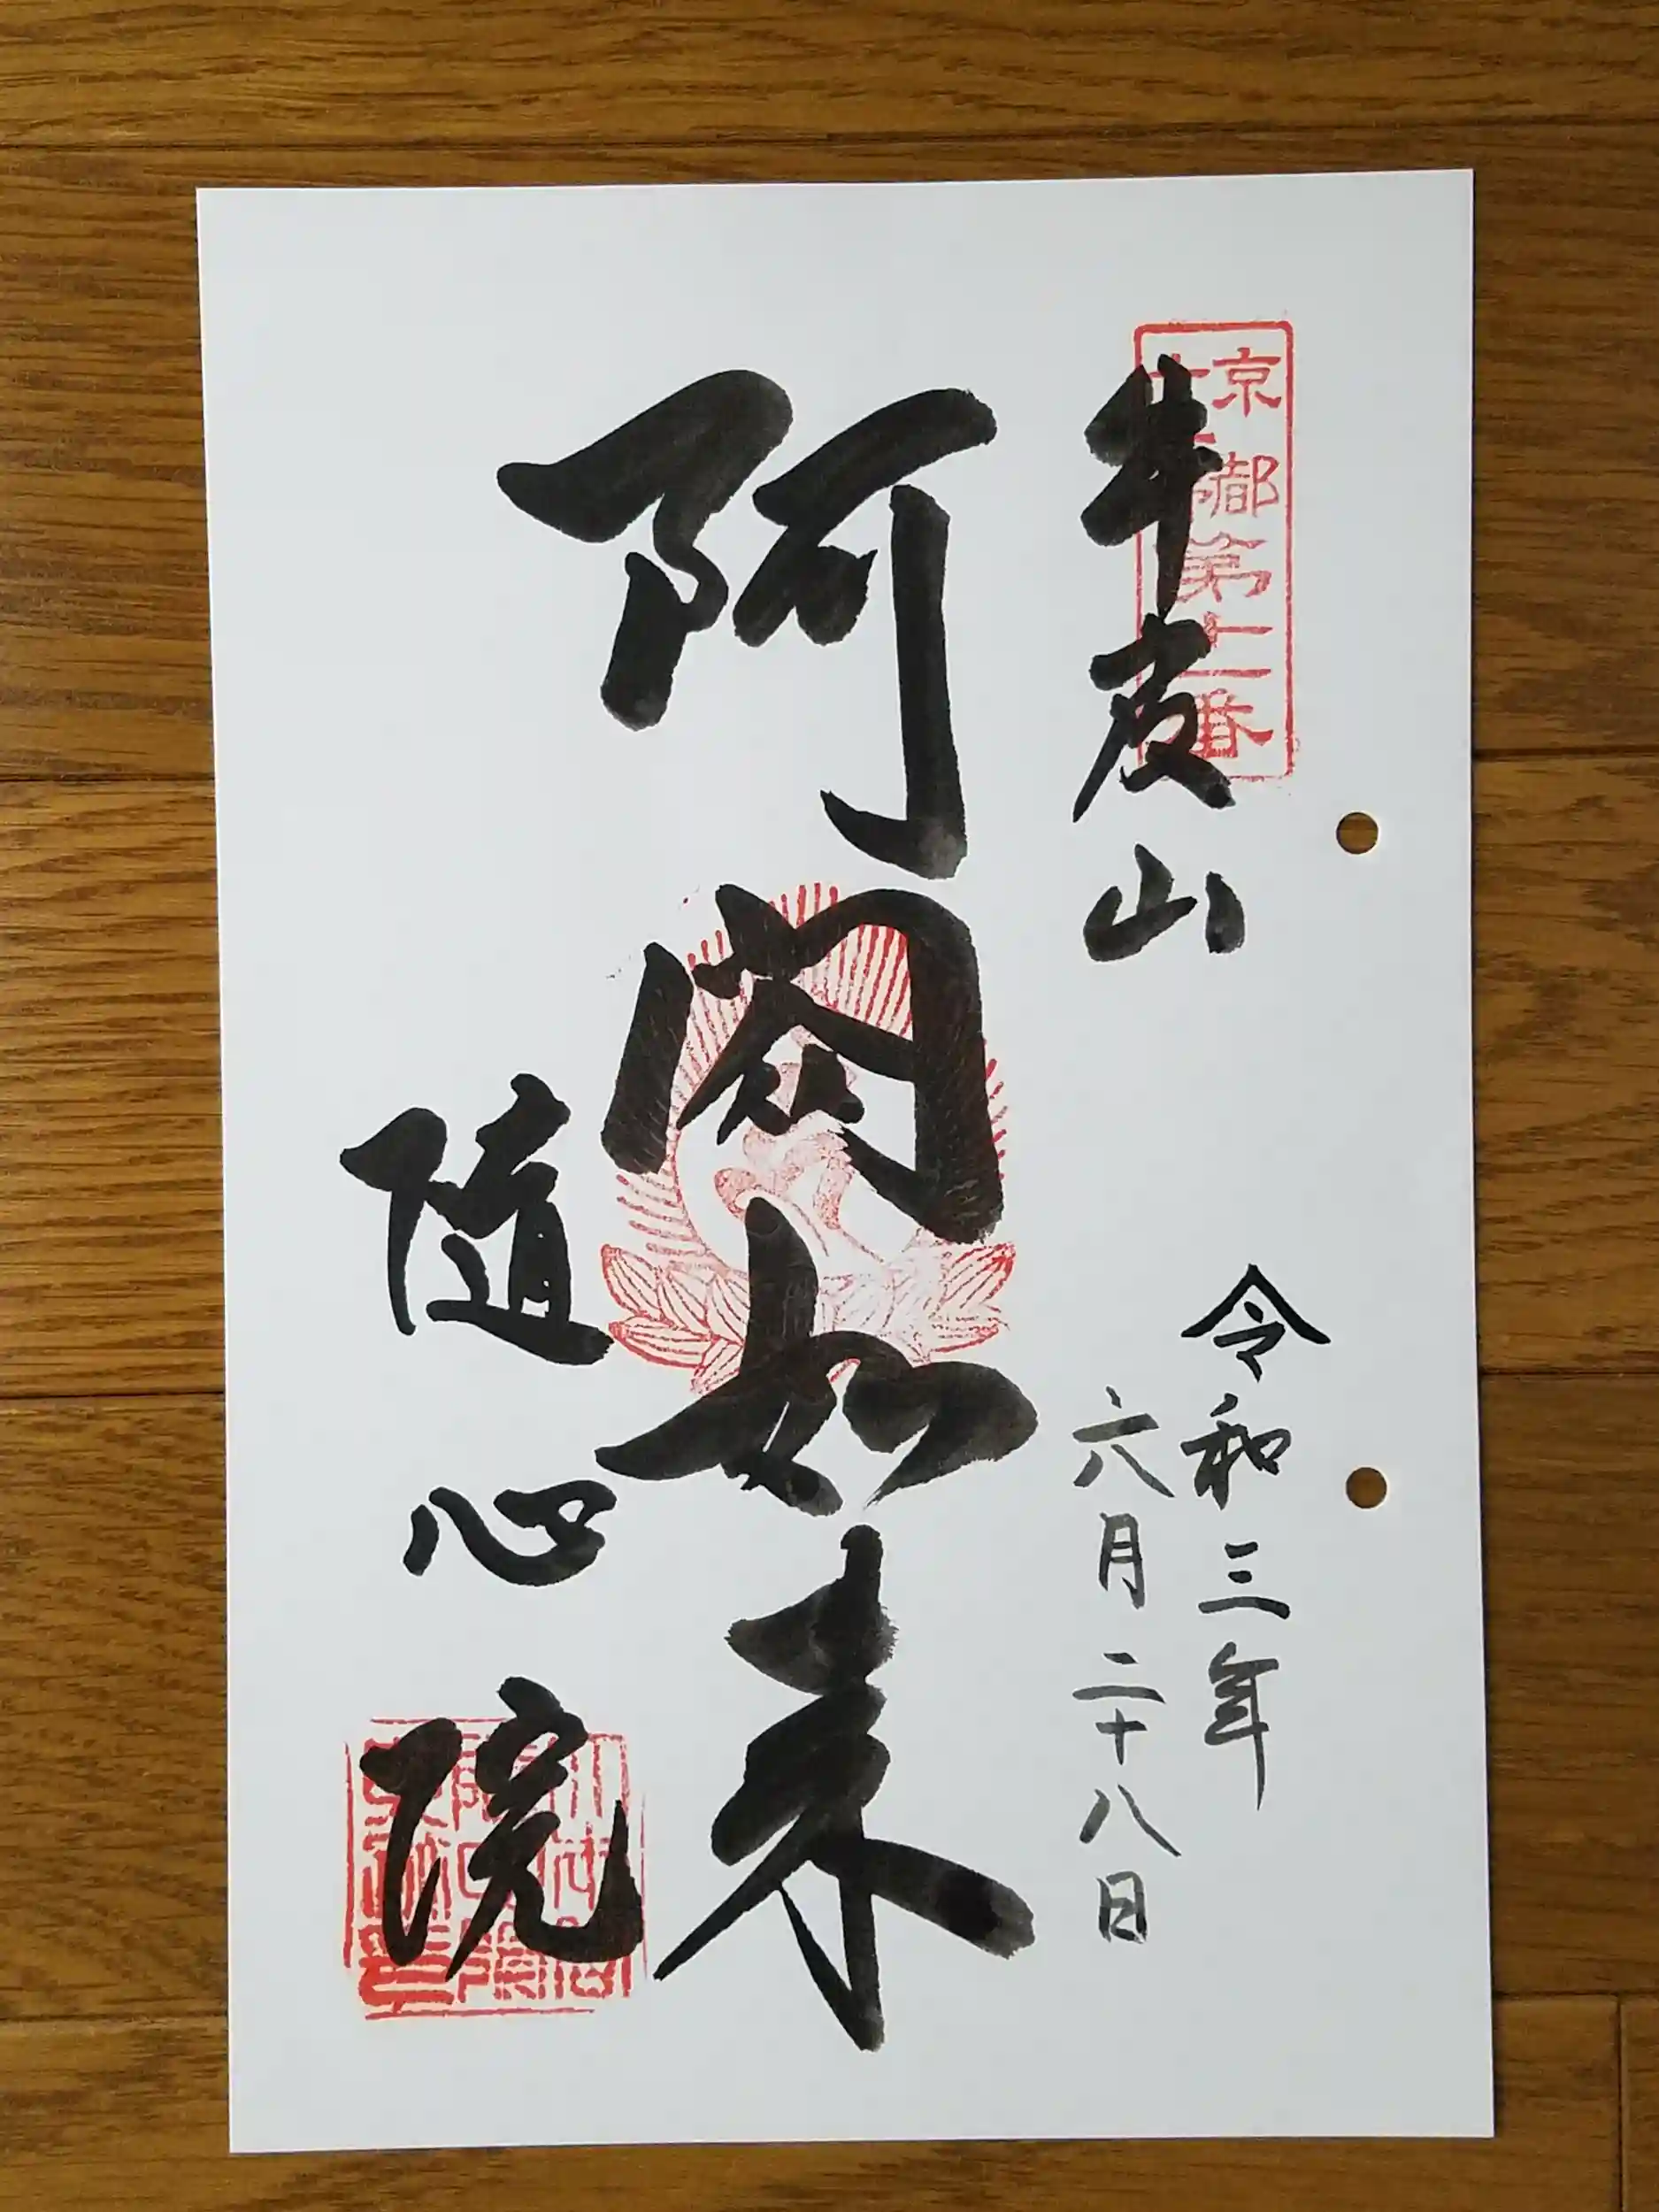 京都
第十一番
牛皮山
令和三年
六月二十八日
阿閦如来
随心院